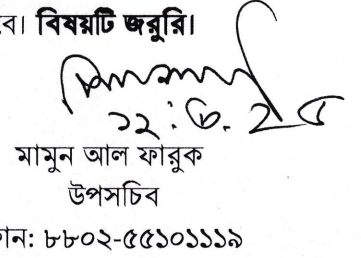 বে। বিষয়টি জরুরি।
১২.৩.২৫
মামুন আল ফারুক
উপসচিব
ান: ৮৮০২-৫৫১০১১১৯